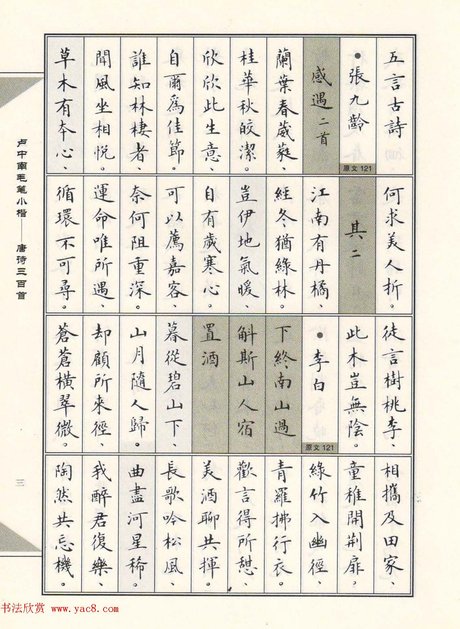 五言古詩
•張九齡
感遇二首
原文121
蘭葉春葳蕤、
桂華秋皎潔。
欣欣此生意、
自爾爲佳節。
誰知林棲者、
聞風坐相悅。
草木有本心、
何求美人折。
其二
江南有丹橘、
經冬猶綠林。
豈伊地氣暖
自有歲寒心。
可以薦嘉客
奈何阻重深。
運命唯所遇、
循環不可尋。
徒言樹桃李、
此木豈無陰。
•李白
原文121
下終南山過
斛斯山人宿
置酒
暮從碧山下、
山月隨人歸。
却顧所來徑、
蒼蒼橫翠微。
相攜及田家、
童稚開荆扉。
綠竹入幽徑、
青蘿拂行衣。
歡言得所憩、
美酒聊共揮。
長歌吟松風、
曲盡河星稀。
我醉君復樂、
陶然共忘機。
卢中南毛笔小楷——唐诗三百首
三
书法欣赏 www.yac8.com